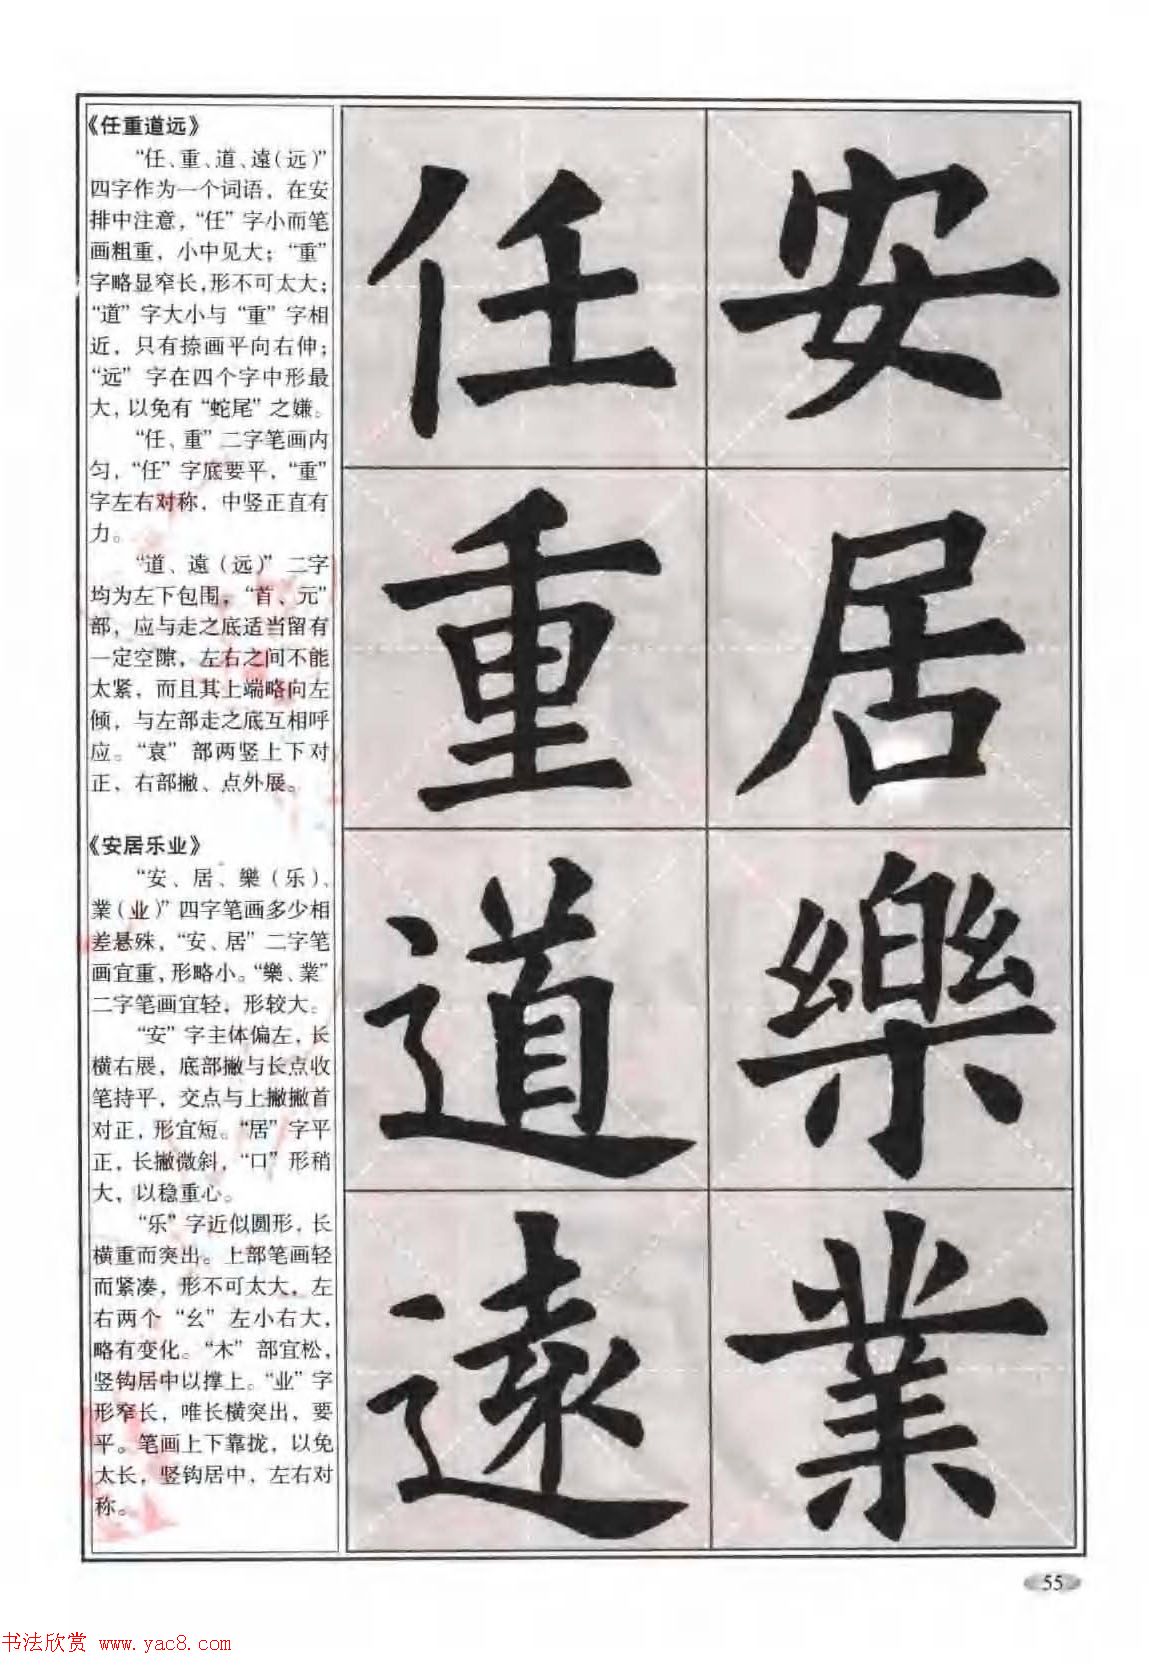 《任重道远》
“任、重、道、遠(远)”
四字作为一个词语，在安
排中注意，“任”字小而笔
画粗重，小中见大；“重”
字略显窄长，形不可太大；
“道”字大小与“重”字相
近，只有捺画平向右伸；
“远”字在四个字中形最
大，以免有“蛇尾”之嫌。
“任、重”二字笔画内
匀，“任”字底要平，“重”
字左右对称，中竖正直有
力。
“道、遠(远)”二字
均为左下包围，“首、元”
部，应与走之底适当留有
一定空隙，左右之间不能
太紧，而且其上端略向左
倾，与左部走之底互相呼
应。“袁”部两竖上下对
正，右部撇、点外展。
《安居乐业》
“安、居、樂(乐)、
業(业)”四字笔画多少相
差悬殊，“安、居”二字笔
画宜重，形略小。“樂、業”
二字笔画宜轻，形较大。
“安”字主体偏左，长
横右展，底部撇与长点收
笔持平，交点与上撇撇首
对正，形宜短。“居”字平
正，长撇微斜，“口”形稍
大，以稳重心。
“乐”字近似圆形，长
横重而突出。上部笔画轻
而紧凑，形不可太大，左
右两个“幺”左小右大，
略有变化。“木”部宜松，
竖钩居中以撑上。“业”字
形窄长，唯长横突出，要
平。笔画上下靠拢，以免
太长，竖钩居中，左右对
称。
安
居
樂
業
任
重
道
遠
55
书法欣赏 www.yac8.com